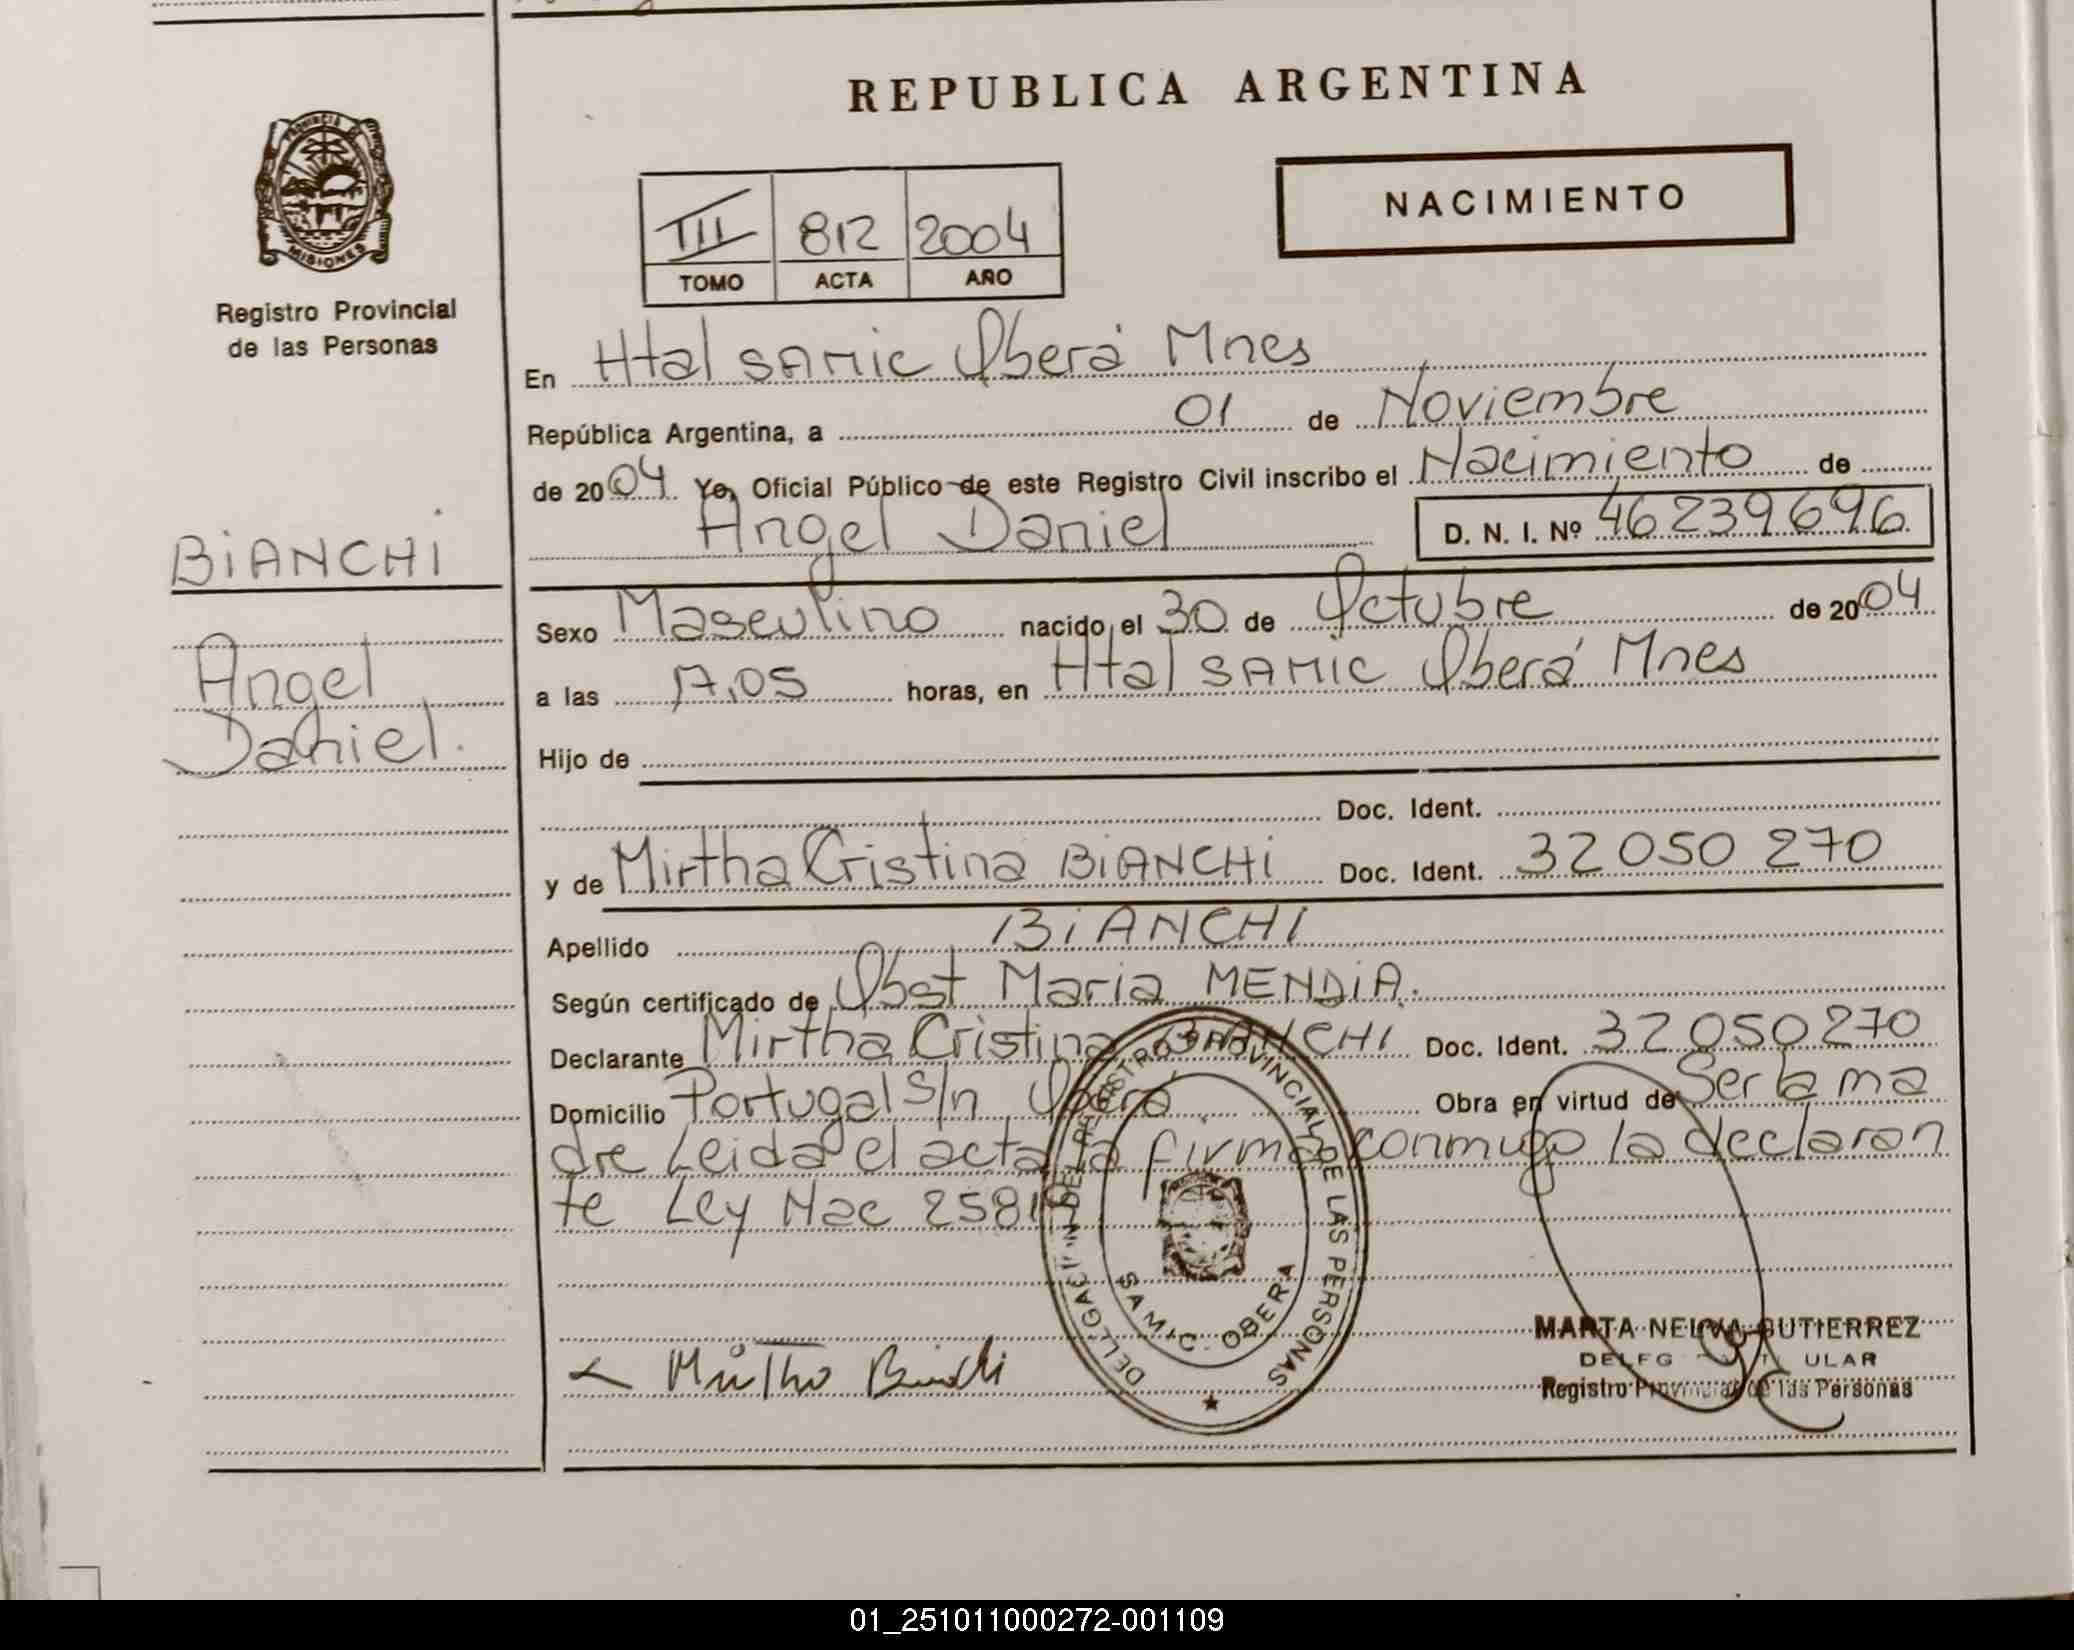 REPUBLICA ARGENTINA
PROVINCIA DE
MISIONES
Registro Provincial
de las Personas
NACIMIENTO
III 812 2004
TOMO ACTA AÑO
En Htal SAMIC Oberá Mnes
República Argentina, a 01 de Noviembre
de 2004 Yo, Oficial Público de este Registro Civil inscribo el Nacimiento de
Angel Daniel D. N. I. Nº 46239696
BiANCHI
Angel
Daniel.
Sexo Masculino nacido el 30 de Octubre de 2004
a las 17,05 horas, en Htal SAMIC Oberá Mnes
Hijo de
Doc. Ident.
y de Mirtha Cristina BiANCHi Doc. Ident. 32 050 270
Apellido BiANCHI
Según certificado de Obst Maria MENDiA.
Declarante Mirtha Cristina BiANCHI Doc. Ident. 32 050270
Domicilio Portugal S/n Oberá Obra en virtud de Ser la ma
dre Leida el acta la firma conmigo la declaran
te Ley Nac 2581
DEL REGISTRO PROVINCIAL DE LAS PERSONAS
SAMIC - OBERA
Mirtha Bianchi
MARTA NELVA GUTIERREZ
Registro Provincial de las Personas
01_251011000272-001109